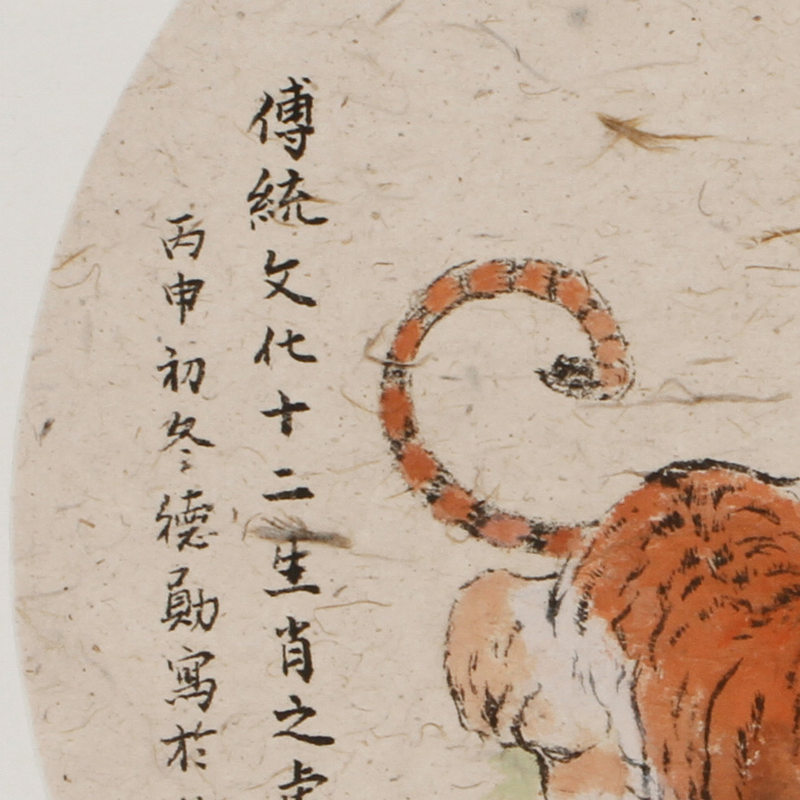 傅統文化十二生肖之
丙申初冬德勛寫於